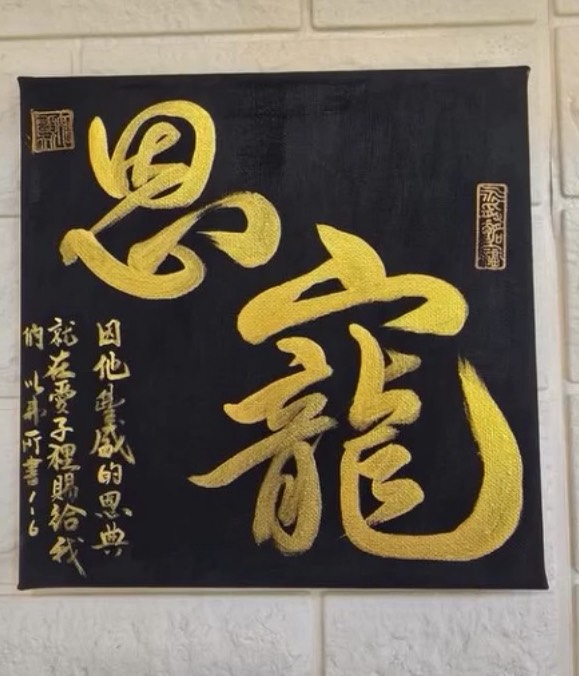 恩寵
因他豐盛的恩典
就在愛子裡賜給我
們 以弗所書1:6